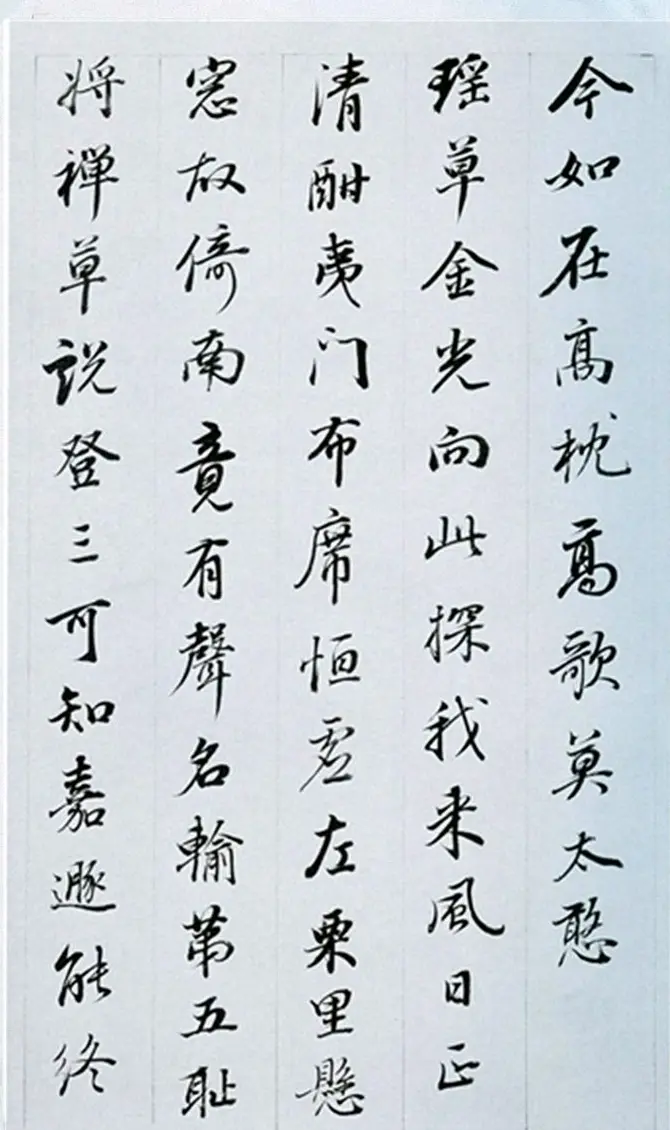 今如在高枕高歌莫太憨
瑶草金光向此探我来風日正
清酣夷门布席恒虚左栗里懸
窓故倚南竟有聲名輸第五恥
将禅草説登三可知嘉遯能終